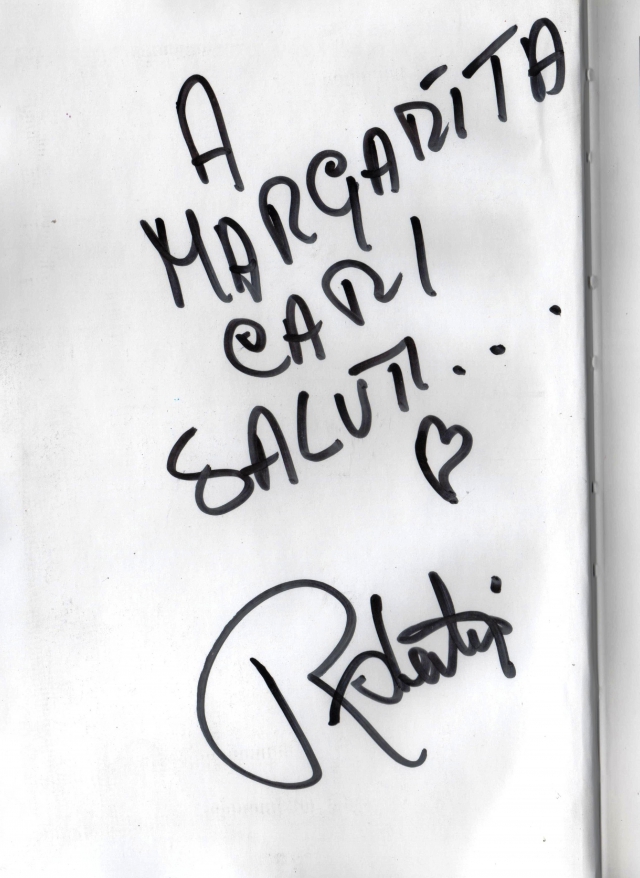 A
MARGARITA
CARI
SALUTI...